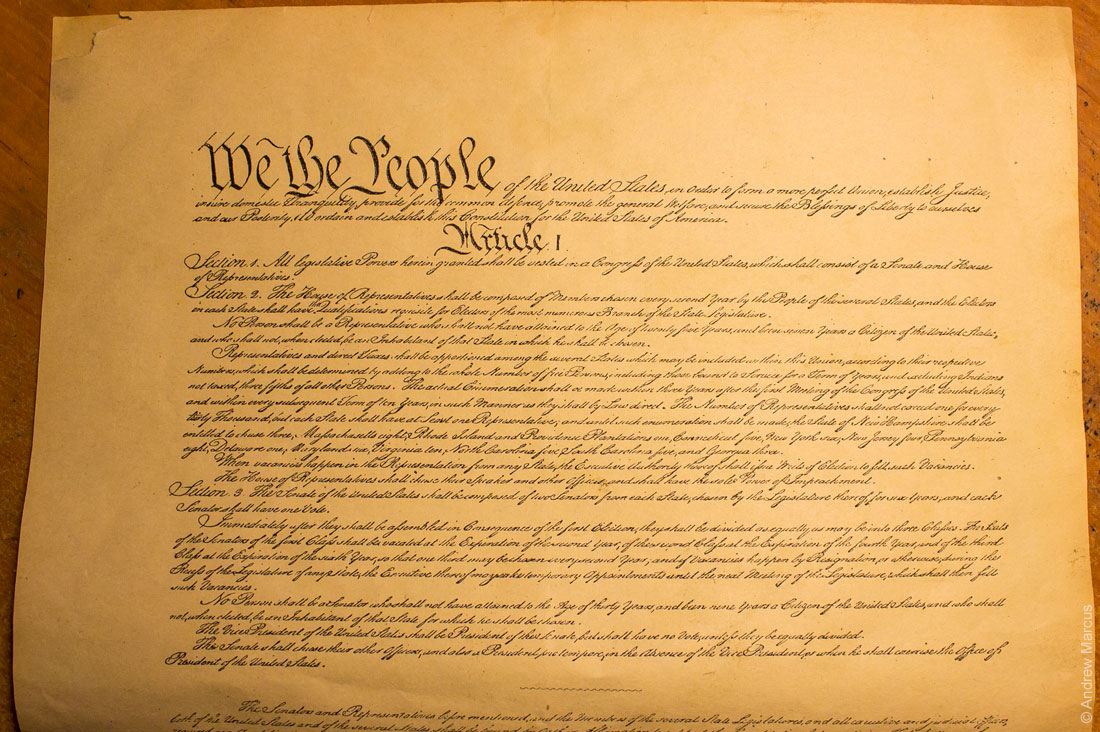 We the People of the United States, in Order to form a more perfect Union, establish Justice,
insure domestic Tranquility, provide for the common defence, promote the general Welfare, and secure the Blessings of Liberty to ourselves
and our Posterity, do ordain and establish this Constitution for the United States of America.
Article I.
Section 1. All legislative Powers herein granted shall be vested in a Congress of the United States, which shall consist of a Senate and House
of Representatives.
Section 2. The House of Representatives shall be composed of Members chosen every second Year by the People of the several States, and the Electors
in each State shall have the Qualifications requisite for Electors of the most numerous Branch of the State Legislature.
No Person shall be a Representative who shall not have attained to the Age of twenty five Years, and been seven Years a Citizen of the United States,
and who shall not, when elected, be an Inhabitant of that State in which he shall be chosen.
Representatives and direct Taxes shall be apportioned among the several States which may be included within this Union, according to their respective
Numbers, which shall be determined by adding to the whole Number of free Persons, including those bound to Service for a Term of Years, and excluding Indians
not taxed, three fifths of all other Persons. The actual Enumeration shall be made within three Years after the first Meeting of the Congress of the United States,
and within every subsequent Term of ten Years, in such Manner as they shall by Law direct. The Number of Representatives shall not exceed one for every
thirty Thousand, but each State shall have at Least one Representative; and until such enumeration shall be made, the State of New Hampshire shall be
entitled to chuse three, Massachusetts eight, Rhode Island and Providence Plantations one, Connecticut five, New York six, New Jersey four, Pennsylvania
eight, Delaware one, Maryland six, Virginia ten, North Carolina five, South Carolina five, and Georgia three.
When vacancies happen in the Representation from any State, the Executive Authority thereof shall issue Writs of Election to fill such Vacancies.
The House of Representatives shall chuse their Speaker and other Officers; and shall have the sole Power of Impeachment.
Section 3 The Senate of the United States shall be composed of two Senators from each State, chosen by the Legislature thereof for six Years; and each
Senator shall have one Vote.
Immediately after they shall be assembled in Consequence of the first Election, they shall be divided as equally as may be into three Classes. The Seats
of the Senators of the first Class shall be vacated at the Expiration of the second Year, of the second Class at the Expiration of the fourth Year, and of the third
Class at the Expiration of the sixth Year, so that one third may be chosen every second Year; and if Vacancies happen by Resignation, or otherwise, during the
Recess of the Legislature of any State, the Executive thereof may make temporary Appointments until the next Meeting of the Legislature, which shall then fill
such Vacancies.
No Person shall be a Senator who shall not have attained to the Age of thirty Years, and been nine Years a Citizen of the United States, and who shall
not, when elected, be an Inhabitant of that State for which he shall be chosen.
The Vice President of the United States shall be President of the Senate, but shall have no Vote, unless they be equally divided.
The Senate shall chuse their other Officers, and also a President pro tempore, in the Absence of the Vice President, or when he shall exercise the Office of
President of the United States.
The Senators and Representatives before mentioned, and the Members of the several State Legislatures, and all executive and judicial Officers,
both of the United States and of the several States, shall be bound by Oath or Affirmation
© Andrew Marcus